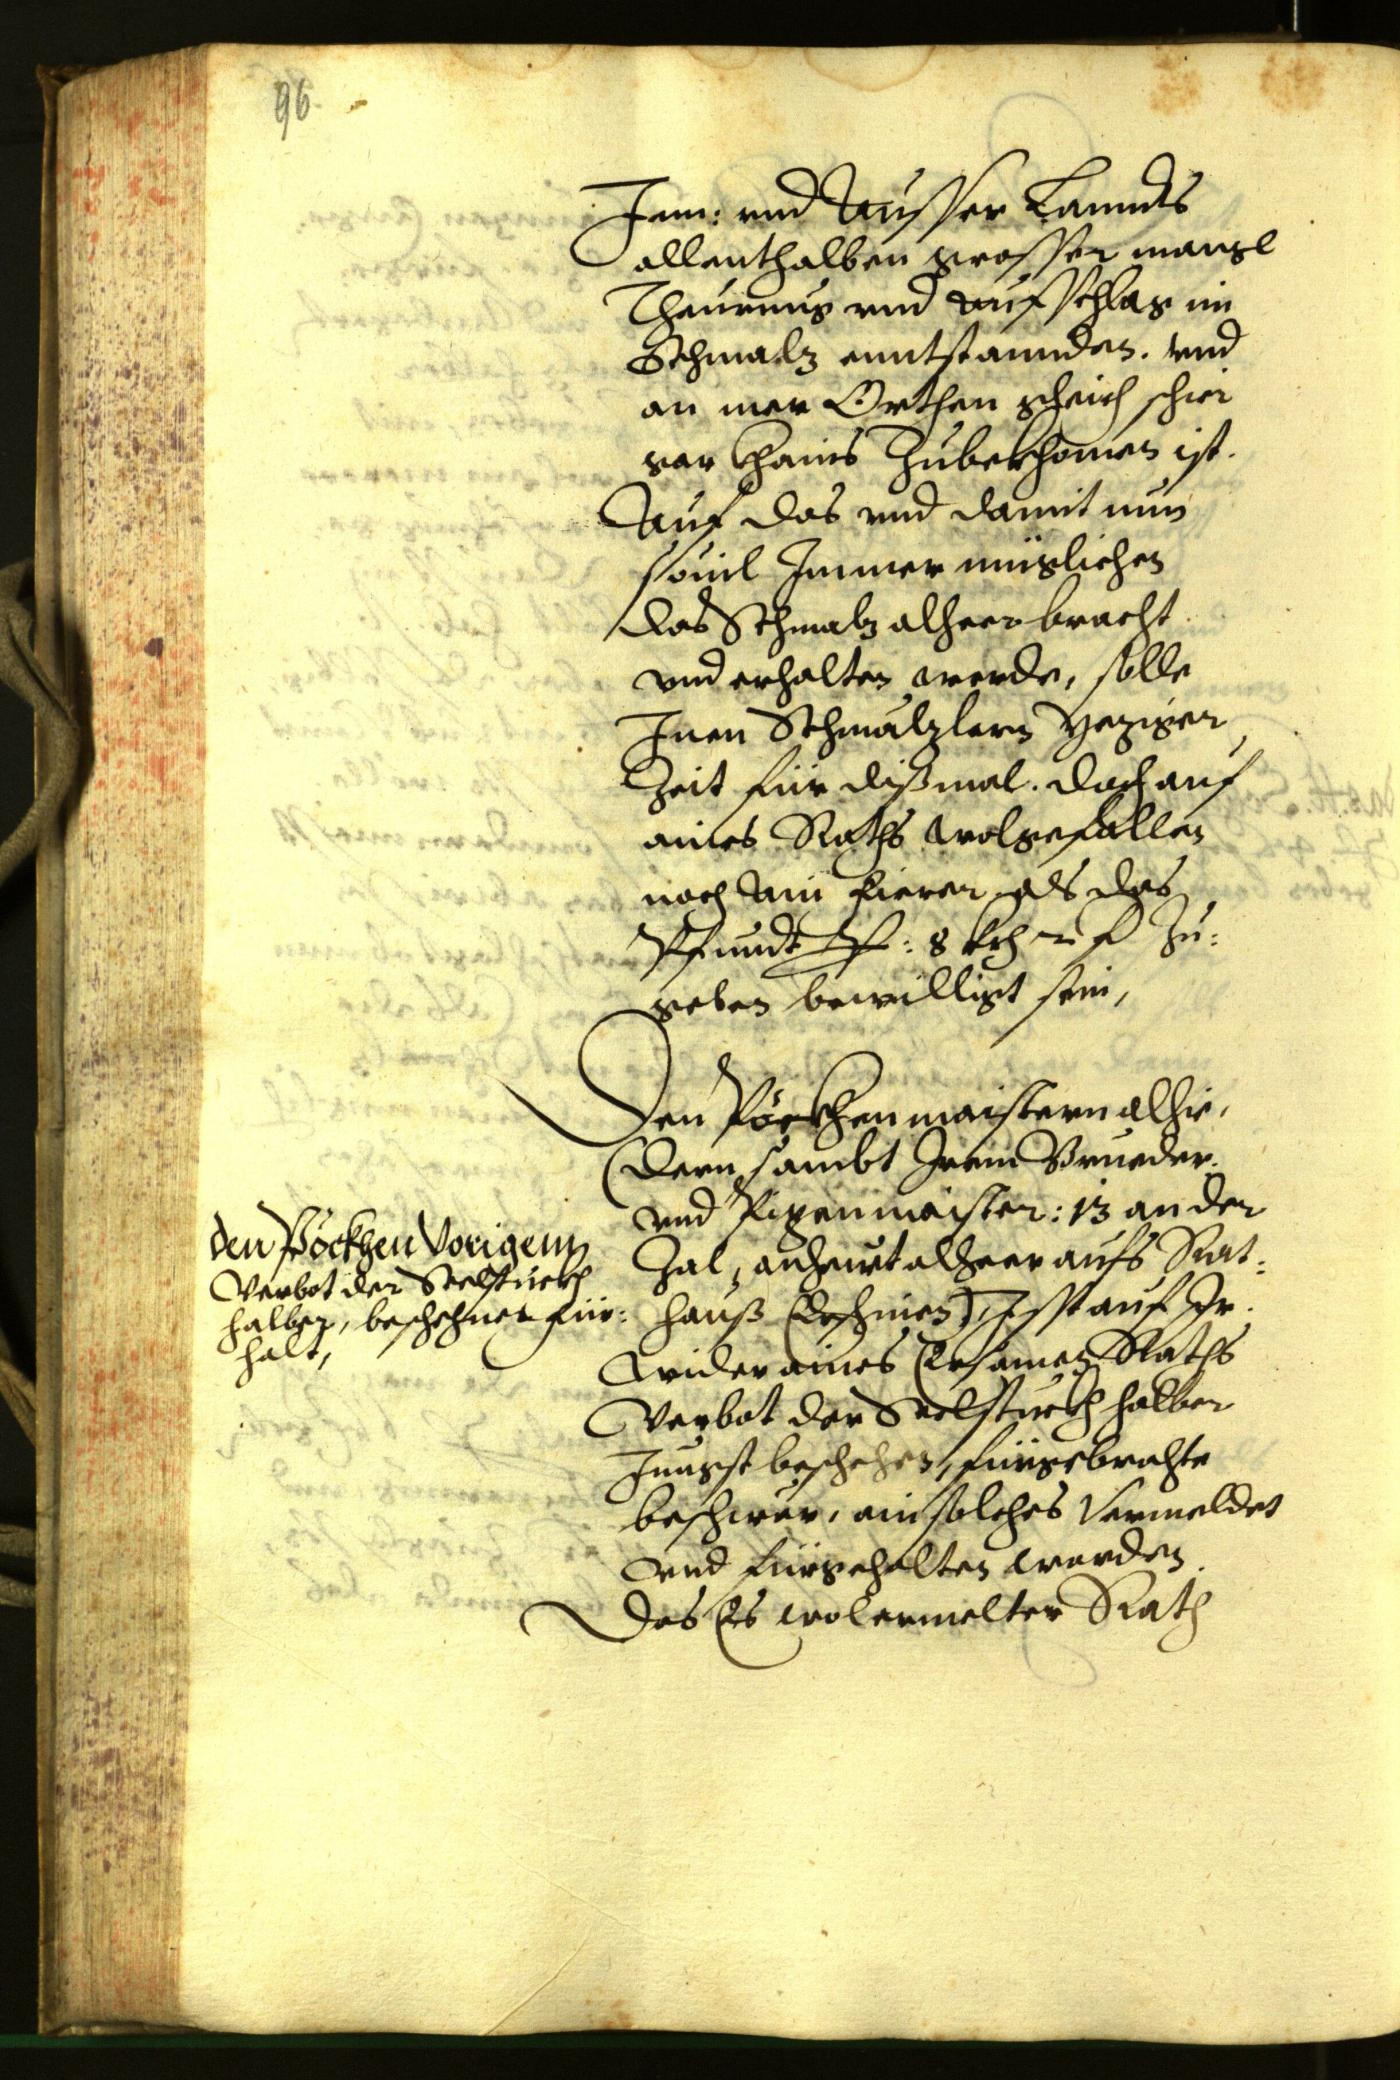 96
Inn: vnd Ausser Lannds
allenthalben grosser mangl
Theurung vnd aufschlag im
Schmalz enntstannden. vnd
an mer Orthen gleich schier
gar khains zubekhomen ist.
Auf das vnd damit nun
souil Immer müglichen
das Schmalz alheer bracht
vnd erhalten werde, solle
Inen Schmalzlern yeziger
Zeit für dißmal. doch auf
aines Raths wolgefallen
noch ain fierer als das
Pfundt : 8 kh 2 f Zu:
geben bewilligt sein,
Den Pöckhen maistern alhie,
dern sambt Irem Brueder.
vnd Pixenmaister: 13 an der
Zal, anheut alheer aufs Rat:
hauß Erschinen, Ist auf Ir.
wider aines Ersamen Raths
Verbot der Seelstuckh halber
Jungst beschehen, fürgebrachte
beschwär, ain solches Vermeldet
vnd fürgehalten worden.
Das Es wolermelter Rath
den Pöckhen Vorigem
Verbot der Seelstuckh
halben, beschehner für:
halt,